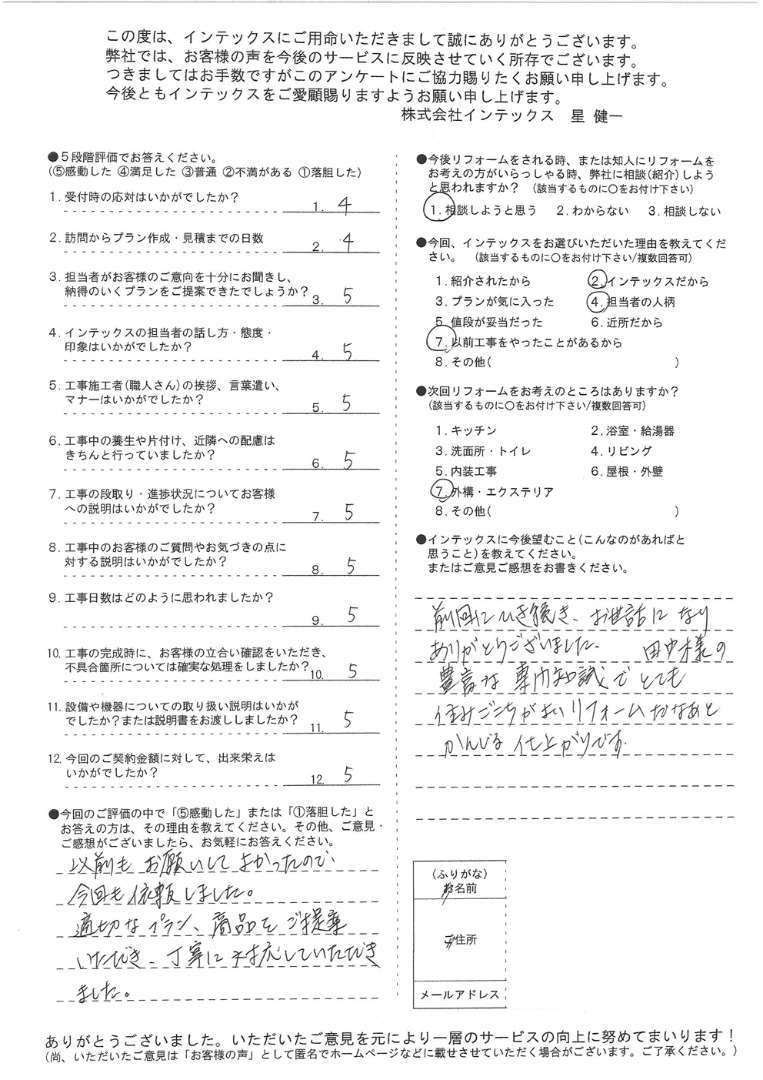 この度は、インテックスにご用命いただきまして誠にありがとうございます。
弊社では、お客様の声を今後のサービスに反映させていく所存でございます。
つきましてはお手数ですがこのアンケートにご協力賜りたくお願い申し上げます。
今後ともインテックスをご愛顧賜りますようお願い申し上げます。
株式会社インテックス 星 健一
●5段階評価でお答えください。
(⑤感動した ④満足した ③普通 ②不満がある ①落胆した)
1. 受付時の応対はいかがでしたか?
1. 4
2. 訪問からプラン作成・見積までの日数
2. 4
3. 担当者がお客様のご意向を十分にお聞きし、
納得のいくプランをご提案できたでしょうか?
3. 5
4. インテックスの担当者の話し方・態度・
印象はいかがでしたか?
4. 5
5. 工事施工者(職人さん)の挨拶、言葉遣い、
マナーはいかがでしたか?
5. 5
6. 工事中の養生や片付け、近隣への配慮は
きちんと行っていましたか?
6. 5
7. 工事の段取り・進捗状況についてお客様
への説明はいかがでしたか?
7. 5
8. 工事中のお客様のご質問やお気づきの点に
対する説明はいかがでしたか?
8. 5
9. 工事日数はどのように思われましたか?
9. 5
10. 工事の完成時に、お客様の立合い確認をいただき、
不具合箇所については確実な処理をしましたか?
10. 5
11. 設備や機器についての取り扱い説明はいかが
でしたか?または説明書をお渡ししましたか?
11. 5
12. 今回のご契約金額に対して、出来栄えは
いかがでしたか?
12. 5
●今回のご評価の中で「⑤感動した」または「①落胆した」と
お答えの方は、その理由を教えてください。その他、ご意見・
ご感想がございましたら、お気軽にお答えください。
以前も お願いして よかったので、
今回も依頼しました。
適切な プラン、商品を ご提案
いただき、丁寧に 対応していただき
ました。
●今後リフォームをされる時、または知人にリフォームを
お考えの方がいらっしゃる時、弊社に相談(紹介)しよう
と思われますか? (該当するものに〇をお付け下さい)
1. 相談しようと思う 2. わからない 3. 相談しない
●今回、インテックスをお選びいただいた理由を教えてくだ
さい。 (該当するものに〇をお付け下さい/複数回答可)
1. 紹介されたから 2. インテックスだから
3. プランが気に入った 4. 担当者の人柄
5. 値段が妥当だった 6. 近所だから
7. 以前工事をやったことがあるから
8. その他( )
●次回リフォームをお考えのところはありますか?
(該当するものに〇をお付け下さい/複数回答可)
1. キッチン 2. 浴室・給湯器
3. 洗面所・トイレ 4. リビング
5. 内装工事 6. 屋根・外壁
7. 外構・エクステリア
8. その他( )
●インテックスに今後望むこと(こんなのがあればと
思うこと)を教えてください。
またはご意見ご感想をお書きください。
前回にひき続き、お世話に なり
ありがとうございました。 田中様の
豊富な 専門知識で とても
住みごこちがよいリフォーム
かんじる 仕上がりです。
(ふりがな)
お名前
ご住所
メールアドレス
ありがとうございました。いただいたご意見を元により一層のサービスの向上に努めてまいります!
(尚、いただいたご意見は「お客様の声」として匿名でホームページなどに載せさせていただく場合がございます。ご了承ください。)